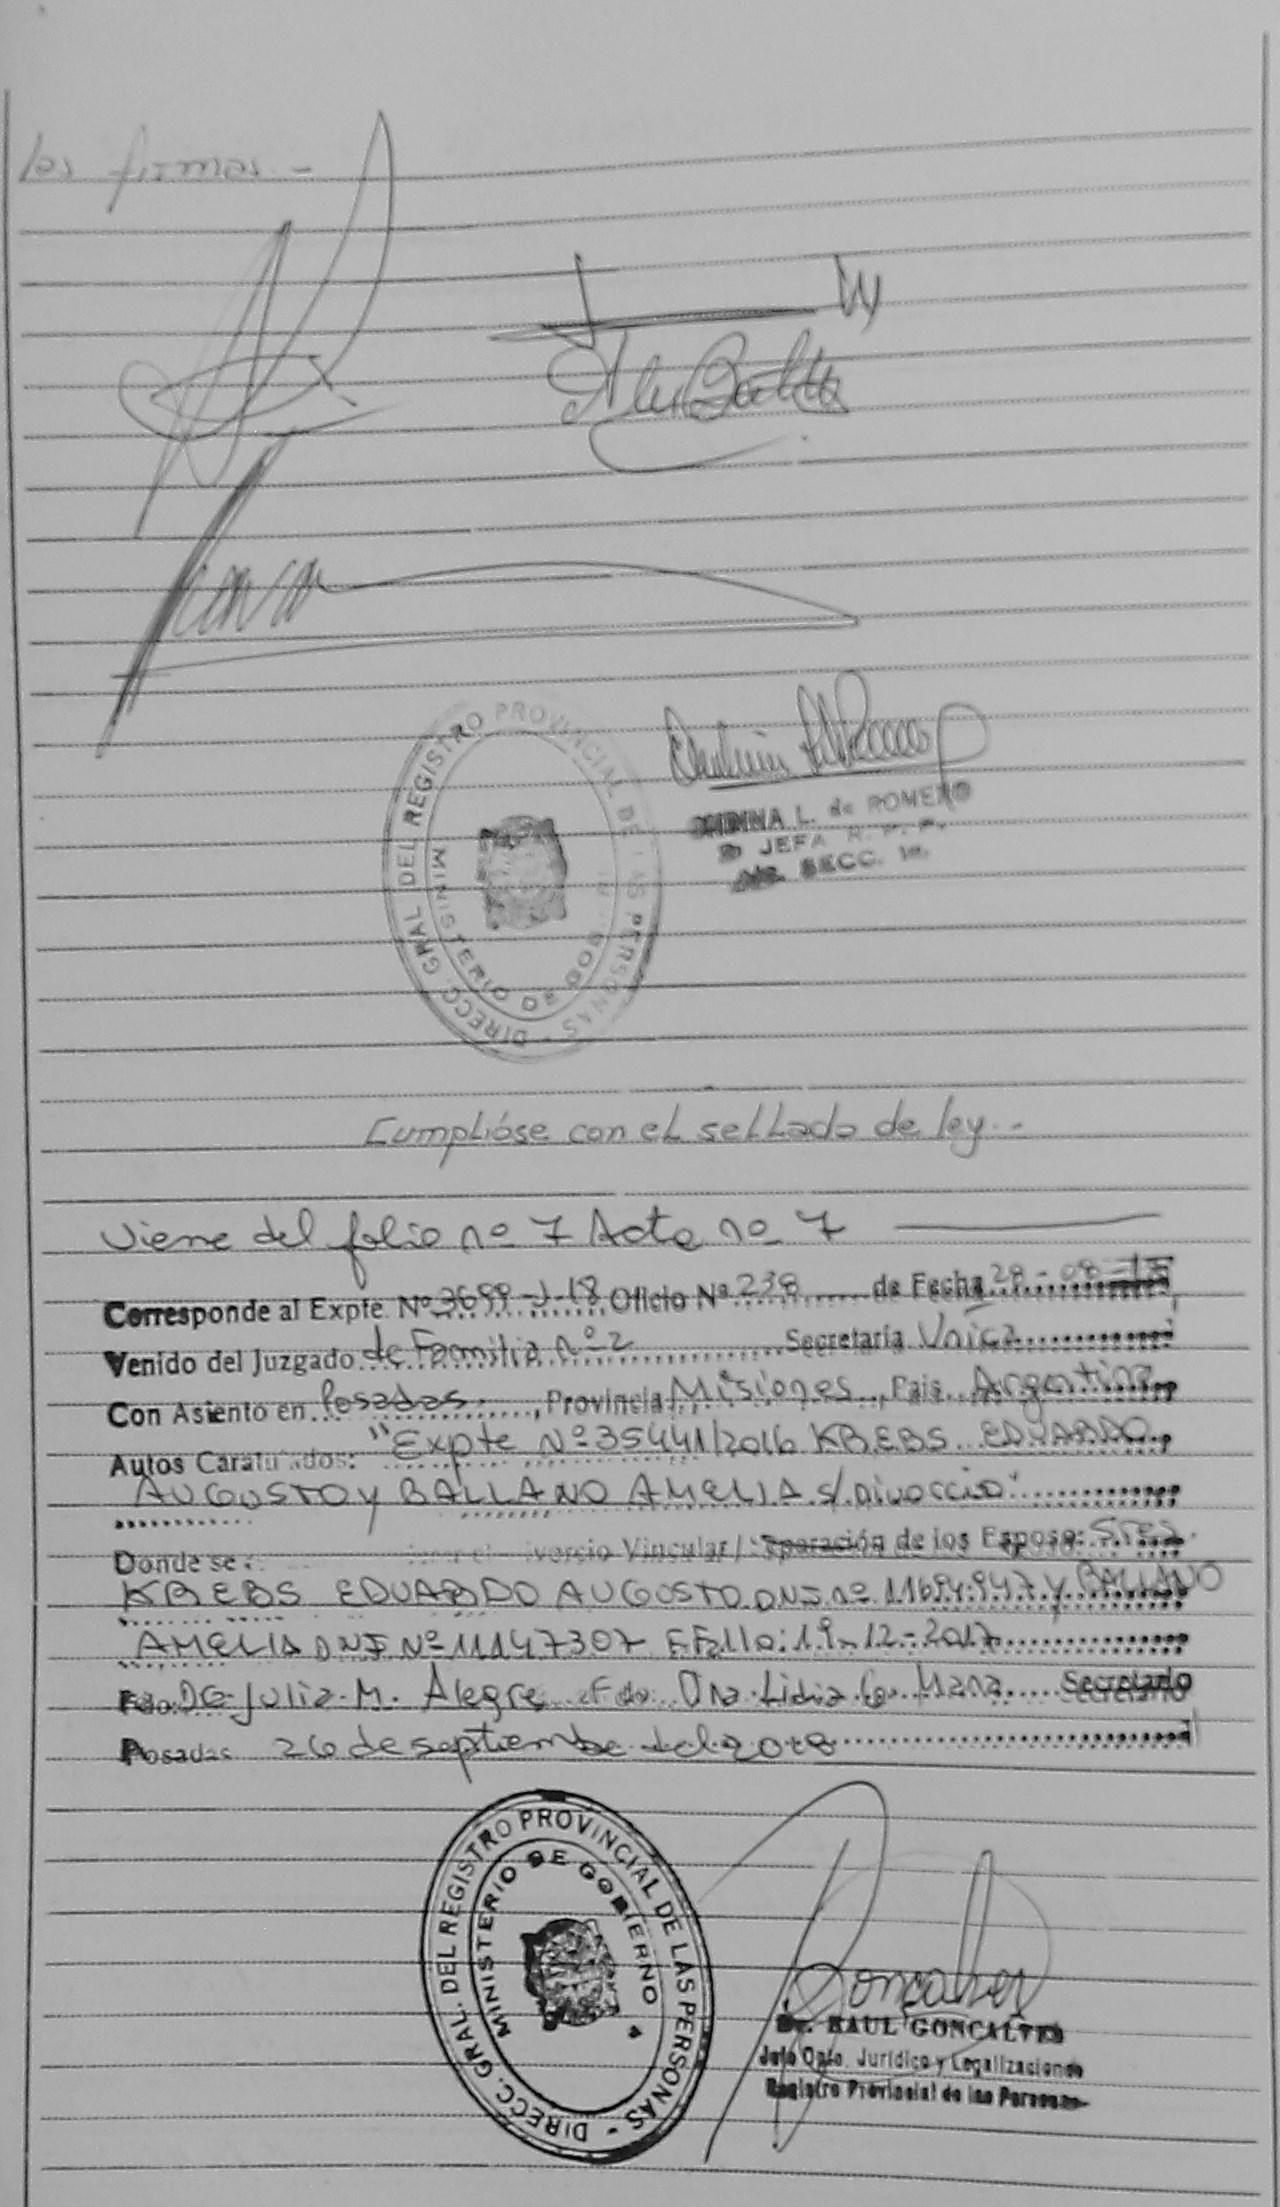 las firmas.-
DIRECC. GRAL. DEL REGISTRO PROVINCIAL DE LAS PERSONAS -
MINISTERIO DE GOB
L. de ROMERO
JEFA R. P. P.
SECC. 1a.
Cumplióse con el sellado de ley.-
Viene del folio nº 7 Acta nº 7
Corresponde al Expte. Nº 3699-J-18 Oficio Nº 238 de Fecha 28-08-18
Venido del Juzgado de Familia nº 2 Secretaría Unica
Con Asiento en Posadas, Provincia Misiones, País Argentina
Autos Caratulados: "Expte Nº 35441/2016 KREBS EDUARDO
AUGUSTO y BALLANO AMELIA s/Divorcio"
Donde se ivorcio Vincular / Separación de los Esposos: Sres.
KREBS EDUARDO AUGUSTO DNI nº 11694947 y BALLANO
AMELIA DNI Nº 11147307 F.Fallo: 19-12-2017
Fdo. Julia M. Alegre Fdo Dra. Lidia Secretario
Posadas 26 de septiembre del 2018
DIRECC. GRAL. DEL REGISTRO PROVINCIAL DE LAS PERSONAS -
MINISTERIO DE GOBIERNO
Dr. RAUL GONCALVES
Jefe Dpto. Jurídico y Legalizaciones
Registro Provincial de las Personas